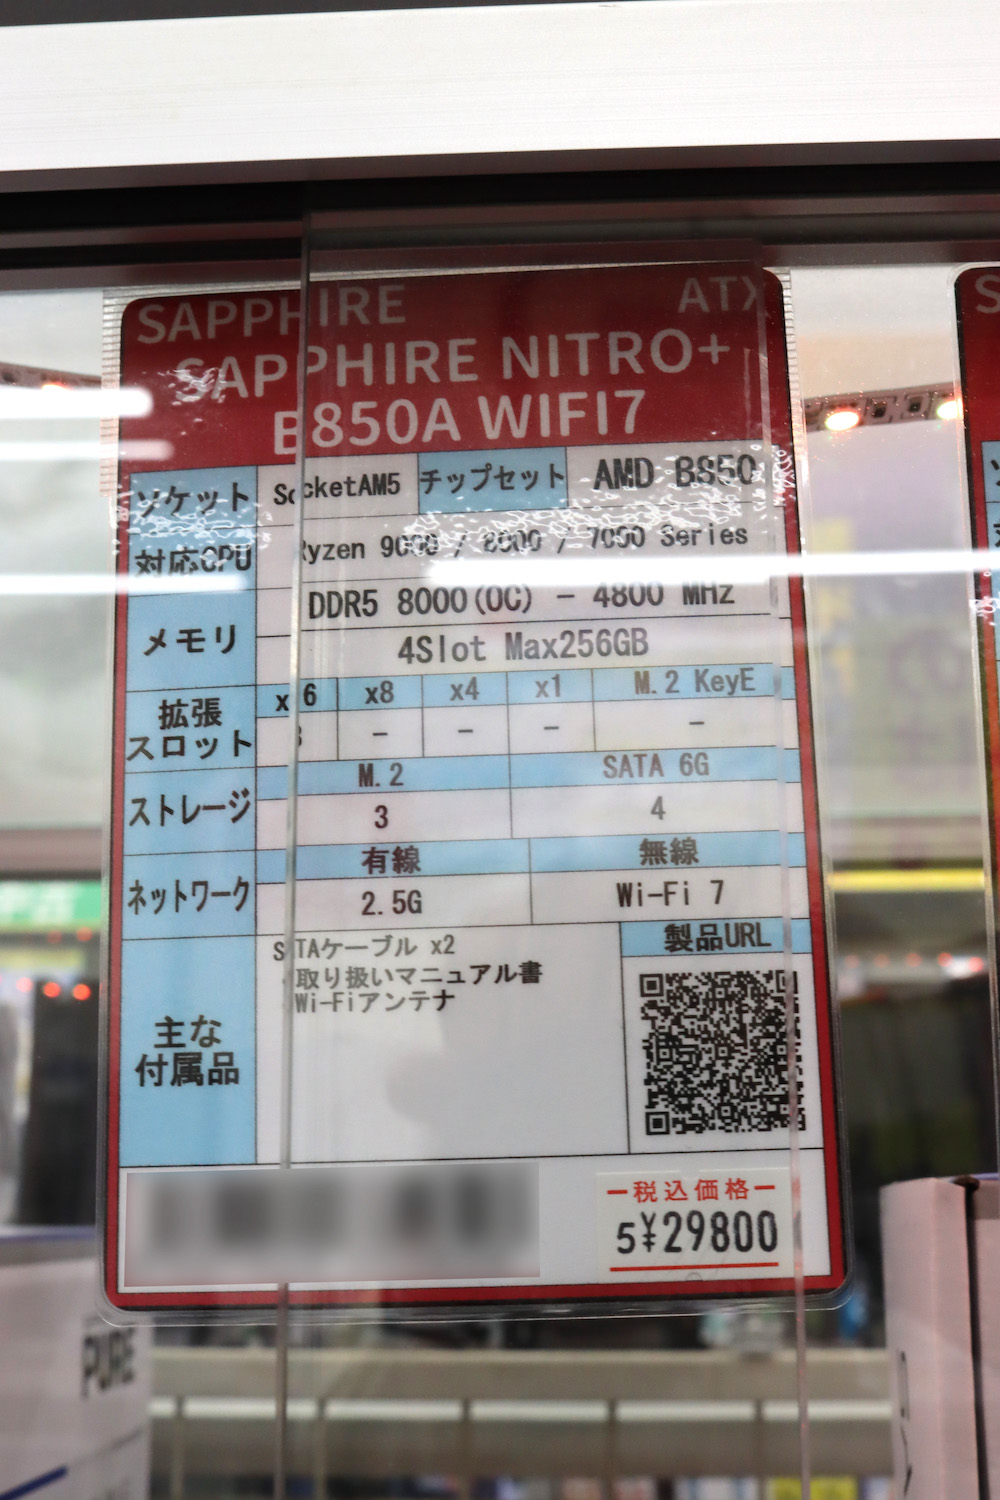 SAPPHIRE ATX
SAPPHIRE NITRO+
B850A WIFI7
ソケット SocketAM5 チップセット AMD B850
対応CPU Ryzen 9000 / 8000 / 7000 Series
メモリ DDR5 8000(OC) - 4800 MHz
4Slot Max256GB
拡張スロット x16 x8 x4 x1 M.2 KeyE
3 - - - -
ストレージ M.2 SATA 6G
3 4
ネットワーク 有線 無線
2.5G Wi-Fi 7
主な付属品 SATAケーブル x2
取り扱いマニュアル書
Wi-Fiアンテナ
製品URL
税込価格
5¥29800
PURE